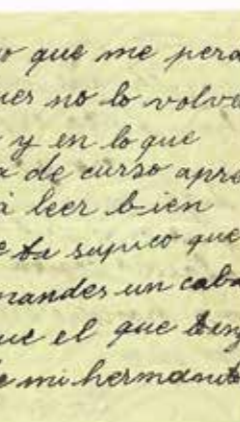 o que me perd
er no lo volve
y en lo que
a de curso apre
á leer bien
e ta suplico que
mandes un caba
ue el que teng
e mi hermanit